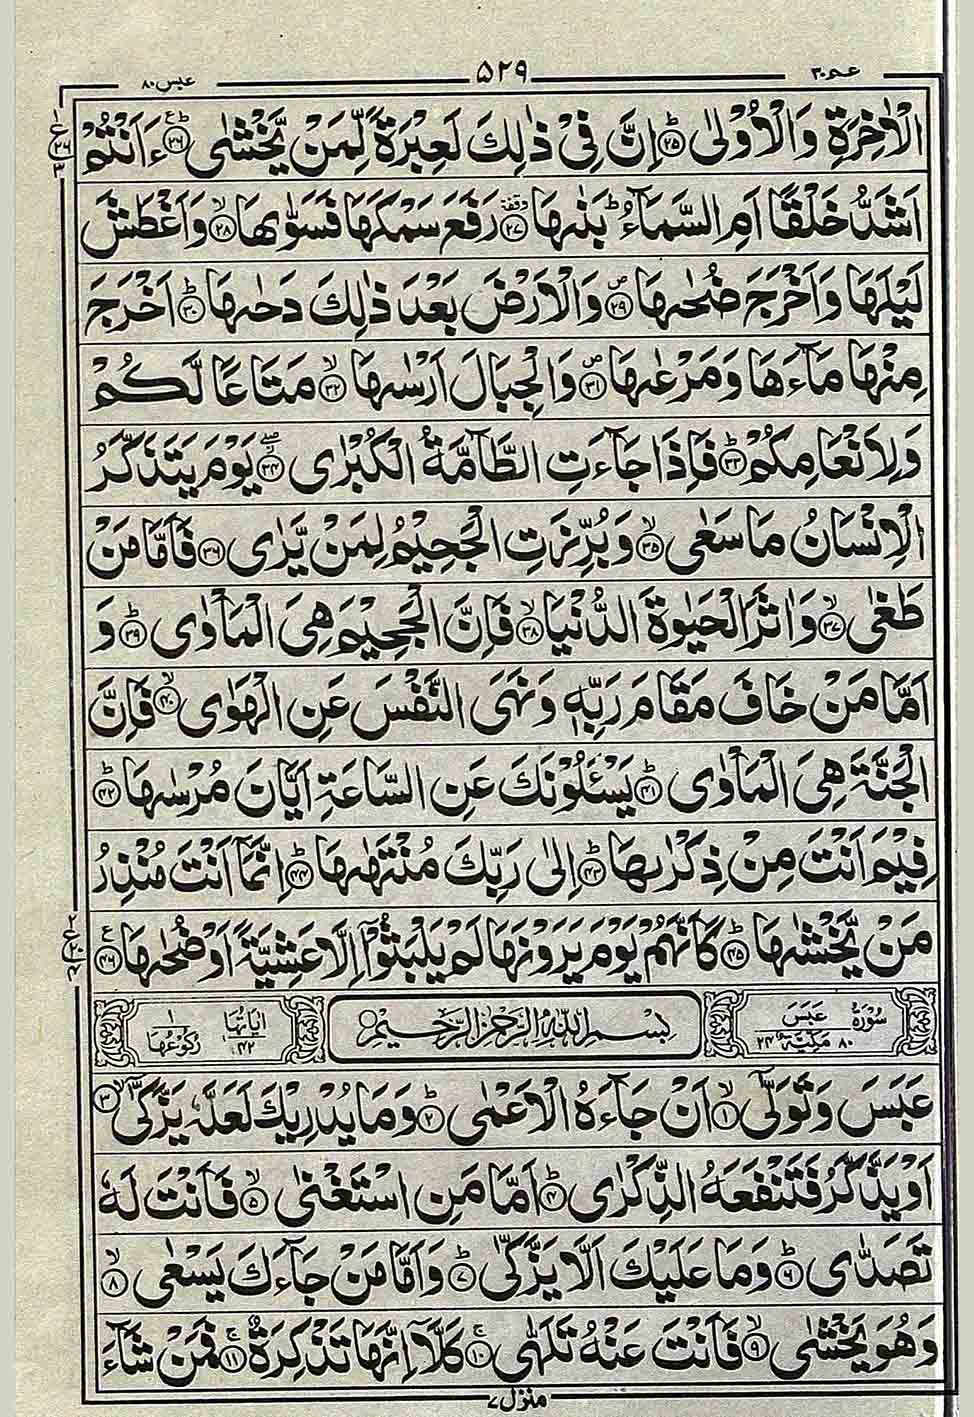 عبس ٨٠ ۵۲۹ عـم ٣٠
الْاٰخِرَةِ وَالْاُوْلٰى ۝۲۵ اِنَّ فِيْ ذٰلِكَ لَعِبْرَةً لِّمَنْ يَّخْشٰى ۝۲۶ ءَاَنْتُمْ
اَشَدُّ خَلْقًا اَمِ السَّمَآءُ ؕ بَنٰىهَا ۝۲۷ رَفَعَ سَمْكَهَا فَسَوّٰىهَا ۝۲۸ وَاَغْطَشَ
لَيْلَهَا وَاَخْرَجَ ضُحٰىهَا ۝۲۹ وَالْاَرْضَ بَعْدَ ذٰلِكَ دَحٰىهَا ۝۳۰ اَخْرَجَ
مِنْهَا مَآءَهَا وَمَرْعٰىهَا ۝۳۱ وَالْجِبَالَ اَرْسٰىهَا ۝۳۲ مَتَاعًا لَّكُمْ
وَلِاَنْعَامِكُمْ ۝۳۳ فَاِذَا جَآءَتِ الطَّآمَّةُ الْكُبْرٰى ۝۳۴ يَوْمَ يَتَذَكَّرُ
الْاِنْسَانُ مَا سَعٰى ۝۳۵ وَبُرِّزَتِ الْجَحِيْمُ لِمَنْ يَّرٰى ۝۳۶ فَاَمَّا مَنْ
طَغٰى ۝۳۷ وَاٰثَرَ الْحَيٰوةَ الدُّنْيَا ۝۳۸ فَاِنَّ الْجَحِيْمَ هِيَ الْمَاْوٰى ۝۳۹ وَ
اَمَّا مَنْ خَافَ مَقَامَ رَبِّهٖ وَنَهَى النَّفْسَ عَنِ الْهَوٰى ۝۴۰ فَاِنَّ
الْجَنَّةَ هِيَ الْمَاْوٰى ۝۴۱ يَسْـَٔلُوْنَكَ عَنِ السَّاعَةِ اَيَّانَ مُرْسٰىهَا ۝۴۲
فِيْمَ اَنْتَ مِنْ ذِكْرٰىهَا ۝۴۳ اِلٰى رَبِّكَ مُنْتَهٰىهَا ۝۴۴ اِنَّمَآ اَنْتَ مُنْذِرُ
مَنْ يَّخْشٰىهَا ۝۴۵ كَاَنَّهُمْ يَوْمَ يَرَوْنَهَا لَمْ يَلْبَثُوْٓا اِلَّا عَشِيَّةً اَوْ ضُحٰىهَا ۝۴۶
سُوْرَةُ عَبَسَ مَكِّيَّةٌ ٨٠ ۲۴ بِسْمِ اللّٰهِ الرَّحْمٰنِ الرَّحِيْمِ اٰيَاتُهَا ۴۲ رُكُوْعُهَا ۱
عَبَسَ وَتَوَلّٰٓى ۝۱ اَنْ جَآءَهُ الْاَعْمٰى ۝۲ وَمَا يُدْرِيْكَ لَعَلَّهٗ يَزَّكّٰٓى ۝۳
اَوْ يَذَّكَّرُ فَتَنْفَعَهُ الذِّكْرٰى ۝۴ اَمَّا مَنِ اسْتَغْنٰى ۝۵ فَاَنْتَ لَهٗ
تَصَدّٰى ۝۶ وَمَا عَلَيْكَ اَلَّا يَزَّكّٰى ۝۷ وَاَمَّا مَنْ جَآءَكَ يَسْعٰى ۝۸
وَهُوَ يَخْشٰى ۝۹ فَاَنْتَ عَنْهُ تَلَهّٰى ۝۱۰ كَلَّآ اِنَّهَا تَذْكِرَةٌ ۝۱۱ فَمَنْ شَآءَ
منزل ٧